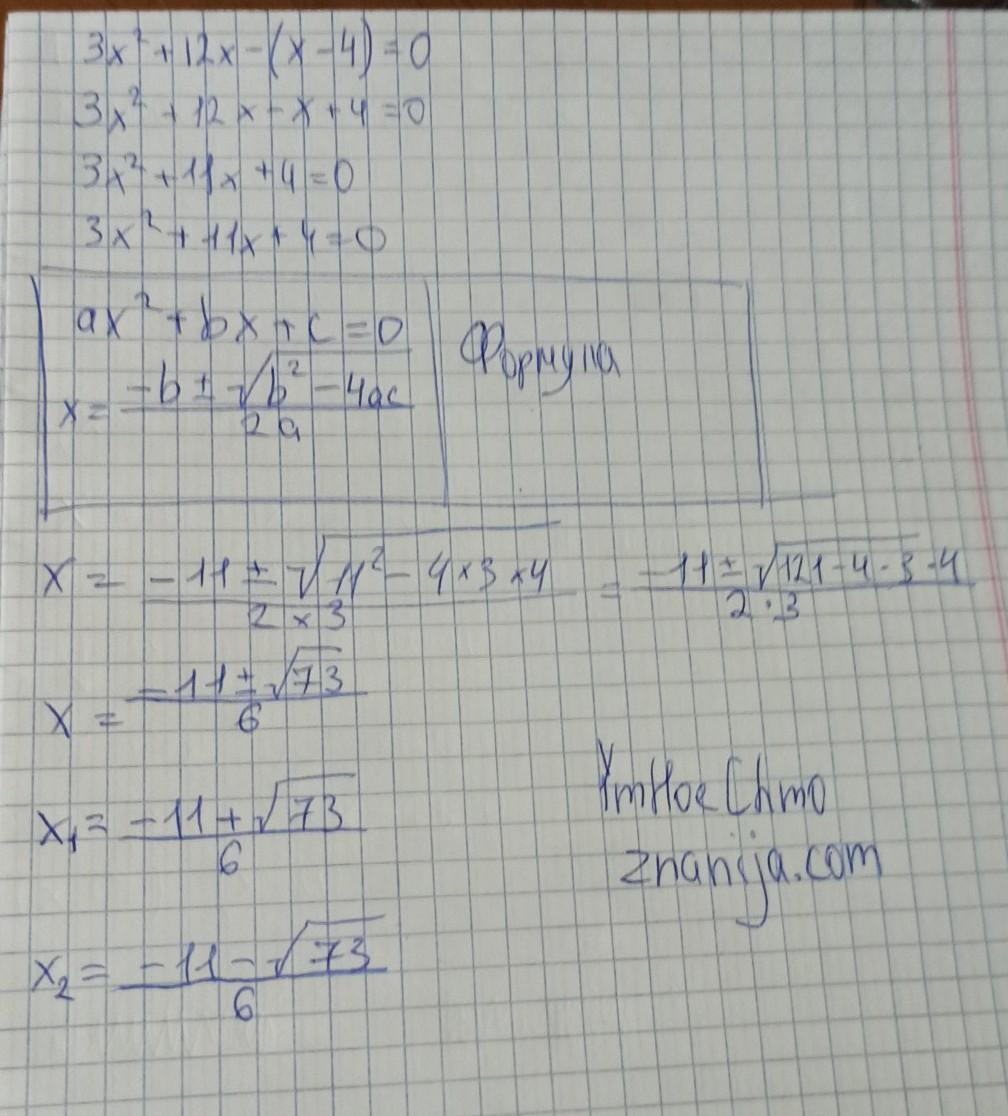 3x² + 12x - (x - 4) = 0
3x² + 12x - x + 4 = 0
3x² + 11x + 4 = 0
3x² + 11x + 4 = 0
ax² + bx + c = 0
x = (-b ± √(b² - 4ac)) / 2a
Формула
x = (-11 ± √(11² - 4 × 3 × 4)) / (2 × 3) = (-11 ± √(121 - 4 · 3 · 4)) / (2 · 3)
x = (-11 ± √73) / 6
x₁ = (-11 + √73) / 6
x₂ = (-11 - √73) / 6
YmHoe Chmo
znanija.com